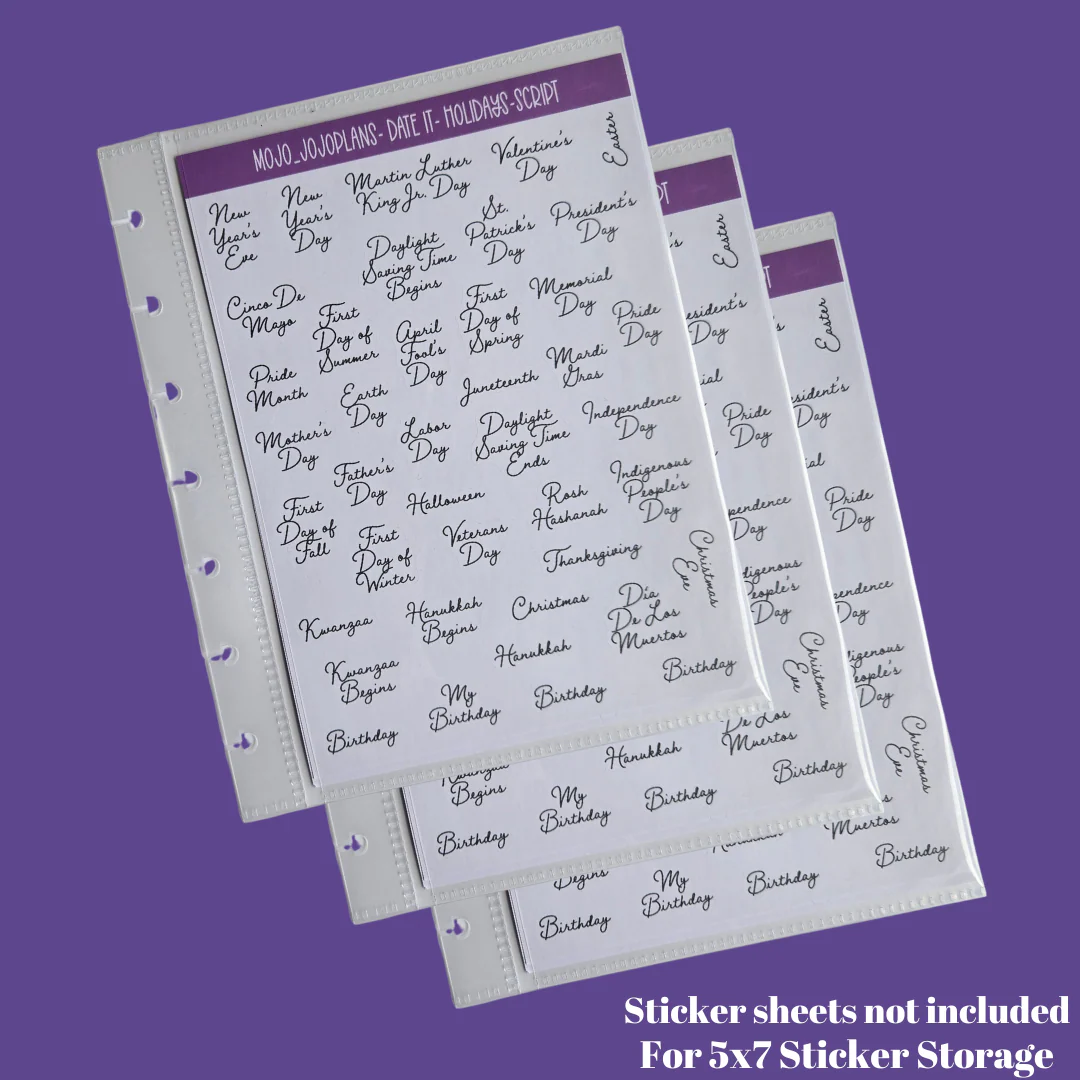 MOJO_JOJOPLANS- DATE IT- HOLIDAYS-SCRIPT
New
Year's
Eve
New
Year's
Day
Martin Luther
King Jr. Day
Valentine's
Day
Easter
Daylight
Saving Time
Begins
St.
Patrick's
Day
President's
Day
Cinco De
Mayo
First
Day of
Summer
April
Fool's
Day
First
Day of
Spring
Memorial
Day
Pride
Day
Pride
Month
Earth
Day
Juneteenth
Mardi
Gras
Mother's
Day
Father's
Day
Labor
Day
Daylight
Saving Time
Ends
Independence
Day
First
Day of
Fall
First
Day of
Winter
Halloween
Veterans
Day
Rosh
Hashanah
Indigenous
People's
Day
Thanksgiving
Christmas
Eve
Kwanzaa
Hanukkah
Begins
Christmas
Día
De Los
Muertos
Kwanzaa
Begins
Hanukkah
Birthday
My
Birthday
Birthday
Birthday
PT
's
Easter
esident's
Day
ial
Pride
Day
pendence
Day
digenous
eople's
Day
Christmas
Eve
De Los
Muertos
Kwanzaa
Begins
Hanukkah
Birthday
My
Birthday
Birthday
Birthday
T
's
Easter
sident's
Day
al
Pride
Day
pendence
Day
digenous
eople's
Day
Christmas
Eve
s
Muertos
Hanukkah
Begins
Birthday
My
Birthday
Birthday
Birthday
Sticker sheets not included
For 5x7 Sticker Storage